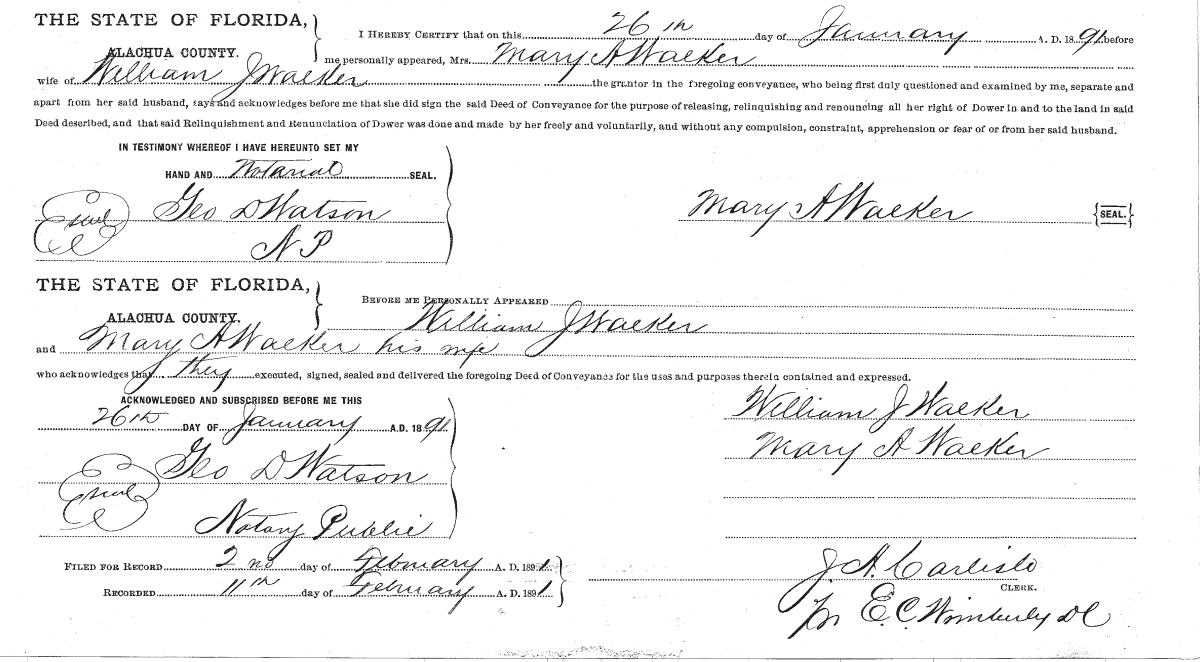 THE STATE OF FLORIDA,
ALACHUA COUNTY.
I HEREBY CERTIFY that on this 26th day of January A. D. 1891 before
me personally appeared, Mrs. Mary A Walker
wife of William J Walker the grantor in the foregoing conveyance, who being first duly questioned and examined by me, separate and
apart from her said husband, says and acknowledges before me that she did sign the said Deed of Conveyance for the purpose of releasing, relinquishing and renouncing all her right of Dower in and to the land in said
Deed described, and that said Relinquishment and Renunciation of Dower was done and made by her freely and voluntarily, and without any compulsion, constraint, apprehension or fear of or from her said husband.
IN TESTIMONY WHEREOF I HAVE HEREUNTO SET MY
HAND AND Notarial SEAL.
Seal Geo D Watson
N P
Mary A Walker {SEAL.}
THE STATE OF FLORIDA,
ALACHUA COUNTY.
BEFORE ME PERSONALLY APPEARED
William J Walker
and Mary A Walker his wife
who acknowledges that they executed, signed, sealed and delivered the foregoing Deed of Conveyance for the uses and purposes therein contained and expressed.
ACKNOWLEDGED AND SUBSCRIBED BEFORE ME THIS
26th DAY OF January A.D. 1891
Seal Geo D Watson
Notary Public
William J Walker
Mary A Walker
FILED FOR RECORD 2nd day of February A. D. 1891
RECORDED 11th day of February A. D. 1891
J. A. Carlisle
CLERK.
Pr E. C. Wimberly DC